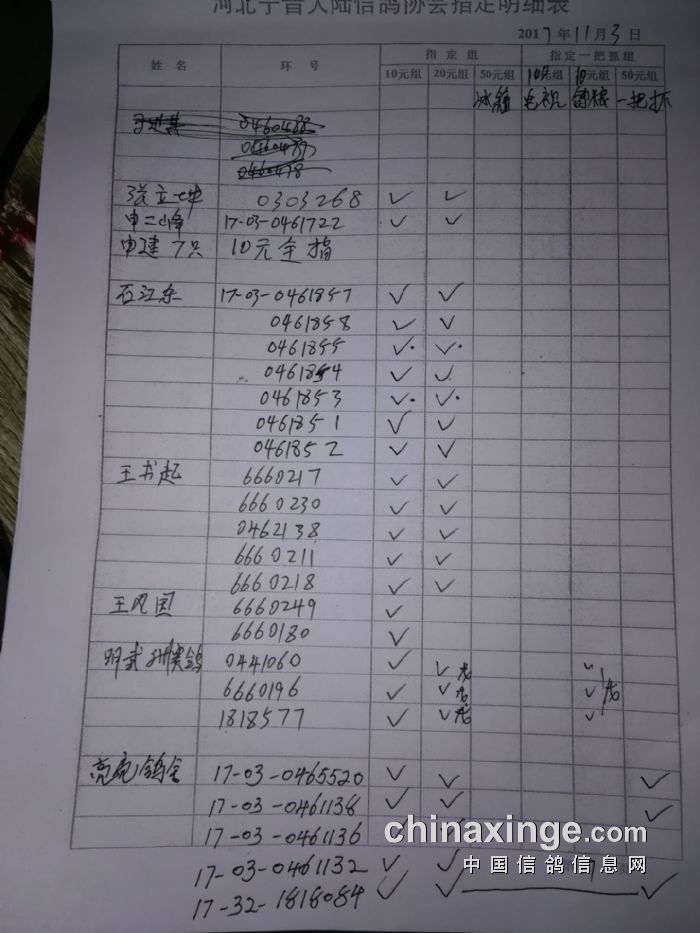 河北宁晋大陆信鸽协会指定明细表
2017年11月3日
姓名 环号 指定组 指定一把抓组
10元组 20元组 50元组 10元组 元组 50元组
一把抓
0460488
0303268 ✓ ✓
申二峰 17-03-0461722 ✓ ✓
申建 7只 10元全指
石江东 17-03-0461857 ✓ ✓
0461858 ✓ ✓
0461855 ✓ ✓
0461854 ✓ ✓
0461853 ✓ ✓
0461851 ✓ ✓
0461852 ✓ ✓
王书起 6660217 ✓ ✓
6660230 ✓ ✓
0462138 ✓ ✓
6660211 ✓ ✓
6660218 ✓ ✓
王风国 6660249 ✓
6660180 ✓
0441060 ✓ ✓ ✓
6660196 ✓ ✓ ✓
1818577 ✓ ✓ ✓
17-03-0465520 ✓ ✓ ✓
17-03-0461138 ✓ ✓ ✓
17-03-0461136
17-03-0461132 ✓ ✓
17-32-1818084 ✓ ✓ ✓
chinaxinge.com
中国信鸽信息网